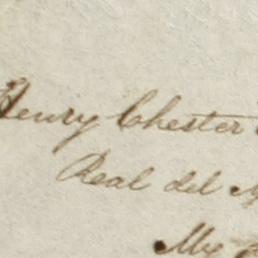 Henry Chester
Real del